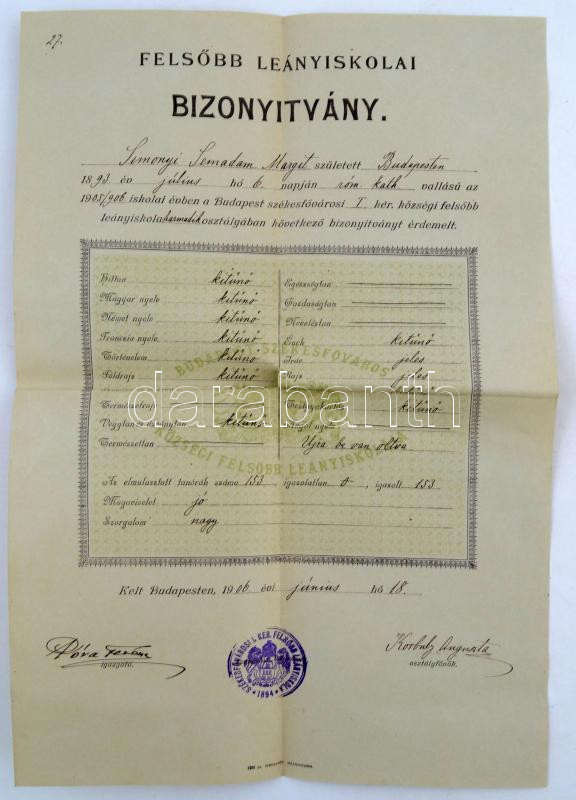 27.
FELSŐBB LEÁNYISKOLAI
BIZONYITVÁNY.
Simonyi Semadam Margit született Budapesten
1893. év július hó 6. napján róm. kath. vallású az
1905/906 iskolai évben a Budapest székesfővárosi I. ker. községi felsőbb
leányiskola harmadik osztályában következő bizonyitványt érdemelt.
Hittan kitünő
Magyar nyelv kitünő
Német nyelv kitünő
Francia nyelv kitünő
Történelem kitünő
Földrajz kitünő
Természetrajz
Vegytan és ásványtan kitünő
Természettan
Egészségtan
Gazdaságtan
Neveléstan
Ének kitünő
Irás jeles
Rajz jeles
kitünő
nyelv
Ujra be van oltva.
BUDAPEST SZÉKESFŐVÁROS
KÖZSÉGI FELSŐBB LEÁNYISKOLA
darabanth
Az elmulasztott tanórák száma 153, igazolatlan 0, igazolt 153
Magaviselet jó
Szorgalom nagy
Kelt Budapesten, 1906 évi június hó 18.
Póra Ferenc
igazgató.
SZÉKESFŐVÁROSI I. KER. FELSŐBB LEÁNYISKOLA
1894
Korbuly Auguszta
osztályfőnök.